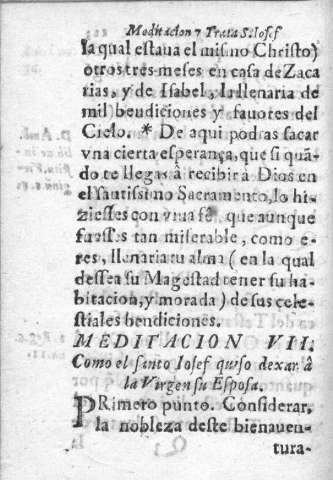 Meditacion 7 Trata S. Iosef
la qual estaua el mismo Christo)
otros tres meses en casa de Zaca
rias, y de Isabel, la llenaria de
mil bendiciones y fauores del
Cielo. * De aqui podras sacar
vna cierta esperança, que si quã-
do te llegas à recibir à Dios en
el santissimo Sacramento, lo hi-
ziesses con viua fè, que aunque
fuesses tan miserable, como e-
res, llenaria tu alma (en la qual
dessea su Magestad tener su ha-
bitacion, y morada) de sus cele-
stiales bendiciones.
MEDITACION VII.
Como el santo Iosef quiso dexar à
la Virgen su Esposa.
PRimero punto. Considerar,
la nobleza deste bienauen-
tura-